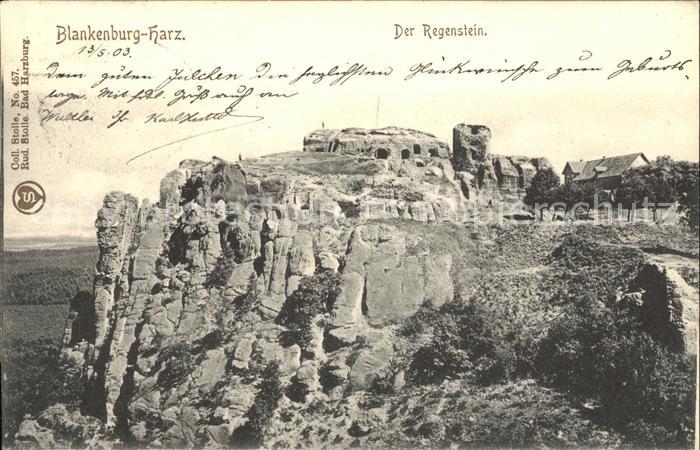 Blankenburg-Harz.
Der Regenstein.
13/5.03.
Dem guten Julchen die herzlichsten Glückwünsche zum Geburts
tage. Mit Gruß auch an
Coll. Stolle, No. 457.
Rud. Stolle. Bad Harzburg.